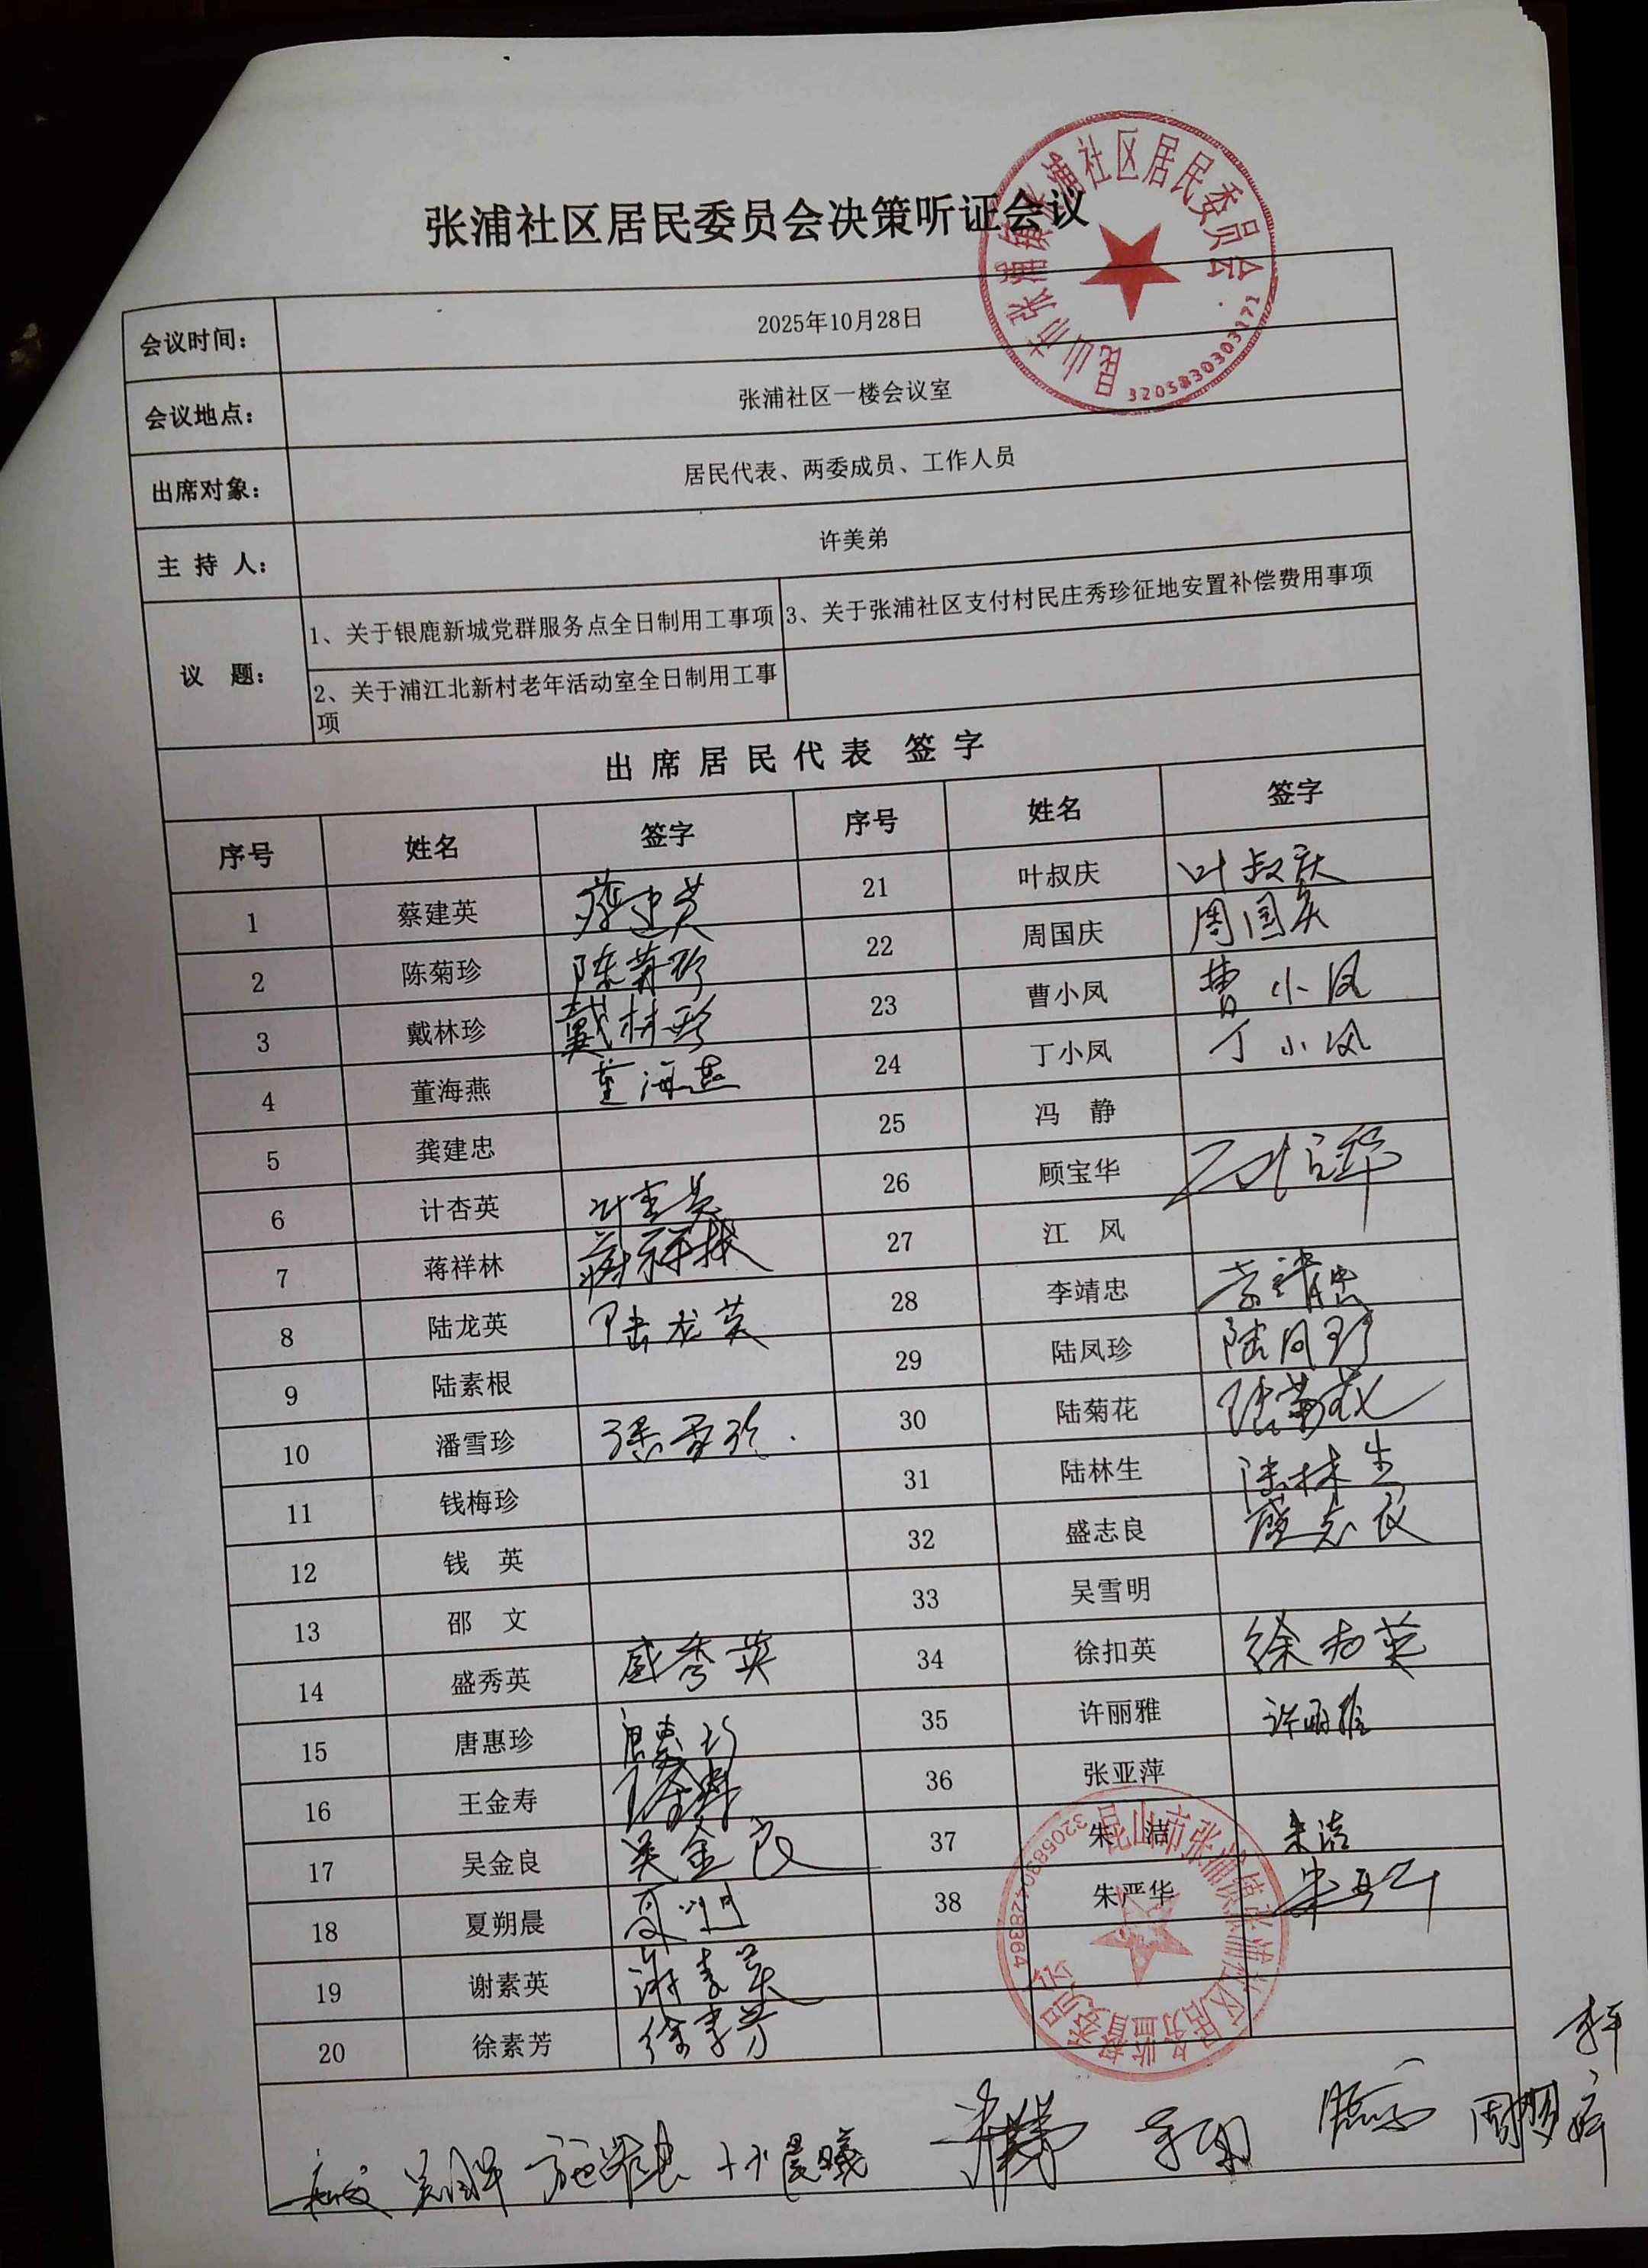 张浦社区居民委员会决策听证会议
昆山市张浦镇张浦社区居民委员会
3205830303171
会议时间： 2025年10月28日
会议地点： 张浦社区一楼会议室
出席对象： 居民代表、两委成员、工作人员
主 持 人： 许美弟
议 题： 1、关于银鹿新城党群服务点全日制用工事项 3、关于张浦社区支付村民庄秀珍征地安置补偿费用事项
2、关于浦江北新村老年活动室全日制用工事
项
出 席 居 民 代 表 签 字
序号 姓名 签字 序号 姓名 签字
1 蔡建英 蔡建英 21 叶叔庆 叶叔庆
2 陈菊珍 陈菊珍 22 周国庆 周国庆
3 戴林珍 戴林珍 23 曹小凤 曹小凤
4 董海燕 董海燕 24 丁小凤 丁小凤
5 龚建忠 25 冯 静
6 计杏英 计杏英 26 顾宝华
7 蒋祥林 蒋祥林 27 江 风
8 陆龙英 陆龙英 28 李靖忠 李靖忠
9 陆素根 29 陆凤珍 陆凤珍
10 潘雪珍 潘雪珍 30 陆菊花 陆菊花
11 钱梅珍 31 陆林生 陆林生
12 钱 英 32 盛志良 盛志良
13 邵 文 33 吴雪明
14 盛秀英 盛秀英 34 徐扣英 徐扣英
15 唐惠珍 唐惠珍 35 许丽雅 许丽雅
16 王金寿 36 张亚萍
17 吴金良 吴金良 37 朱 洁 朱洁
18 夏朔晨 38 朱严华
19 谢素英 谢素英
20 徐素芳 徐素芳
昆山市张浦镇张浦社区居务监督委员会
3205830428364